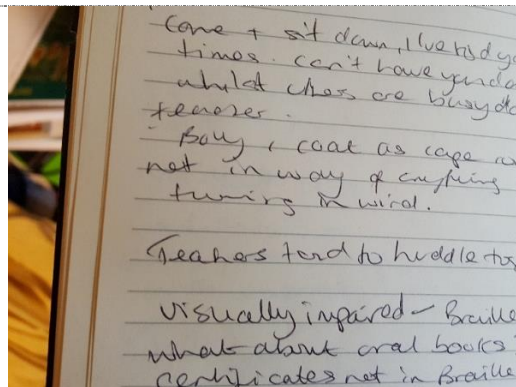 come + sit down, I've told yo
times. can't have you do
whilst others are busy do
teacher.
Boy, coat as cape
not in way of anything
turning in wind.
Teachers tend to huddle tog
visually impaired - Braille
what about oral books
certificates not in Braille